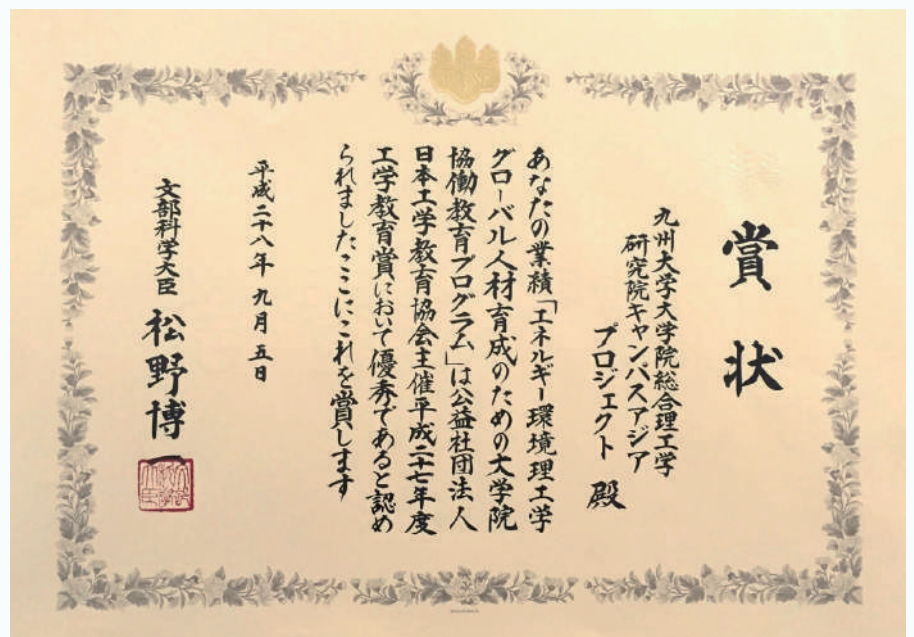 賞状
九州大学大学院総合理工学
研究院キャンパスアジア
プロジェクト 殿
あなたの業績「エネルギー環境理工学
グローバル人材育成のための大学院
協働教育プログラム」は公益社団法人
日本工学教育協会主催平成二十七年度
工学教育賞において優秀であると認め
られましたここにこれを賞します
平成二十八年九月五日
文部科学大臣 松野博一